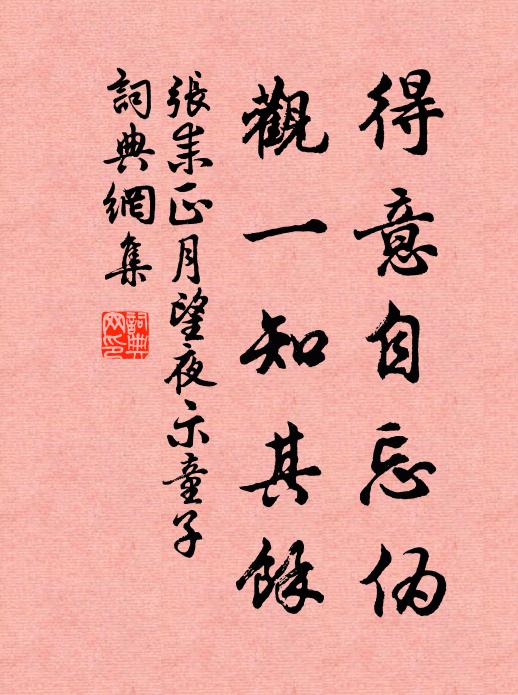 得意自忘伪
觀一知其餘
張耒正月望夜示童子
詞典網集
詞典网印